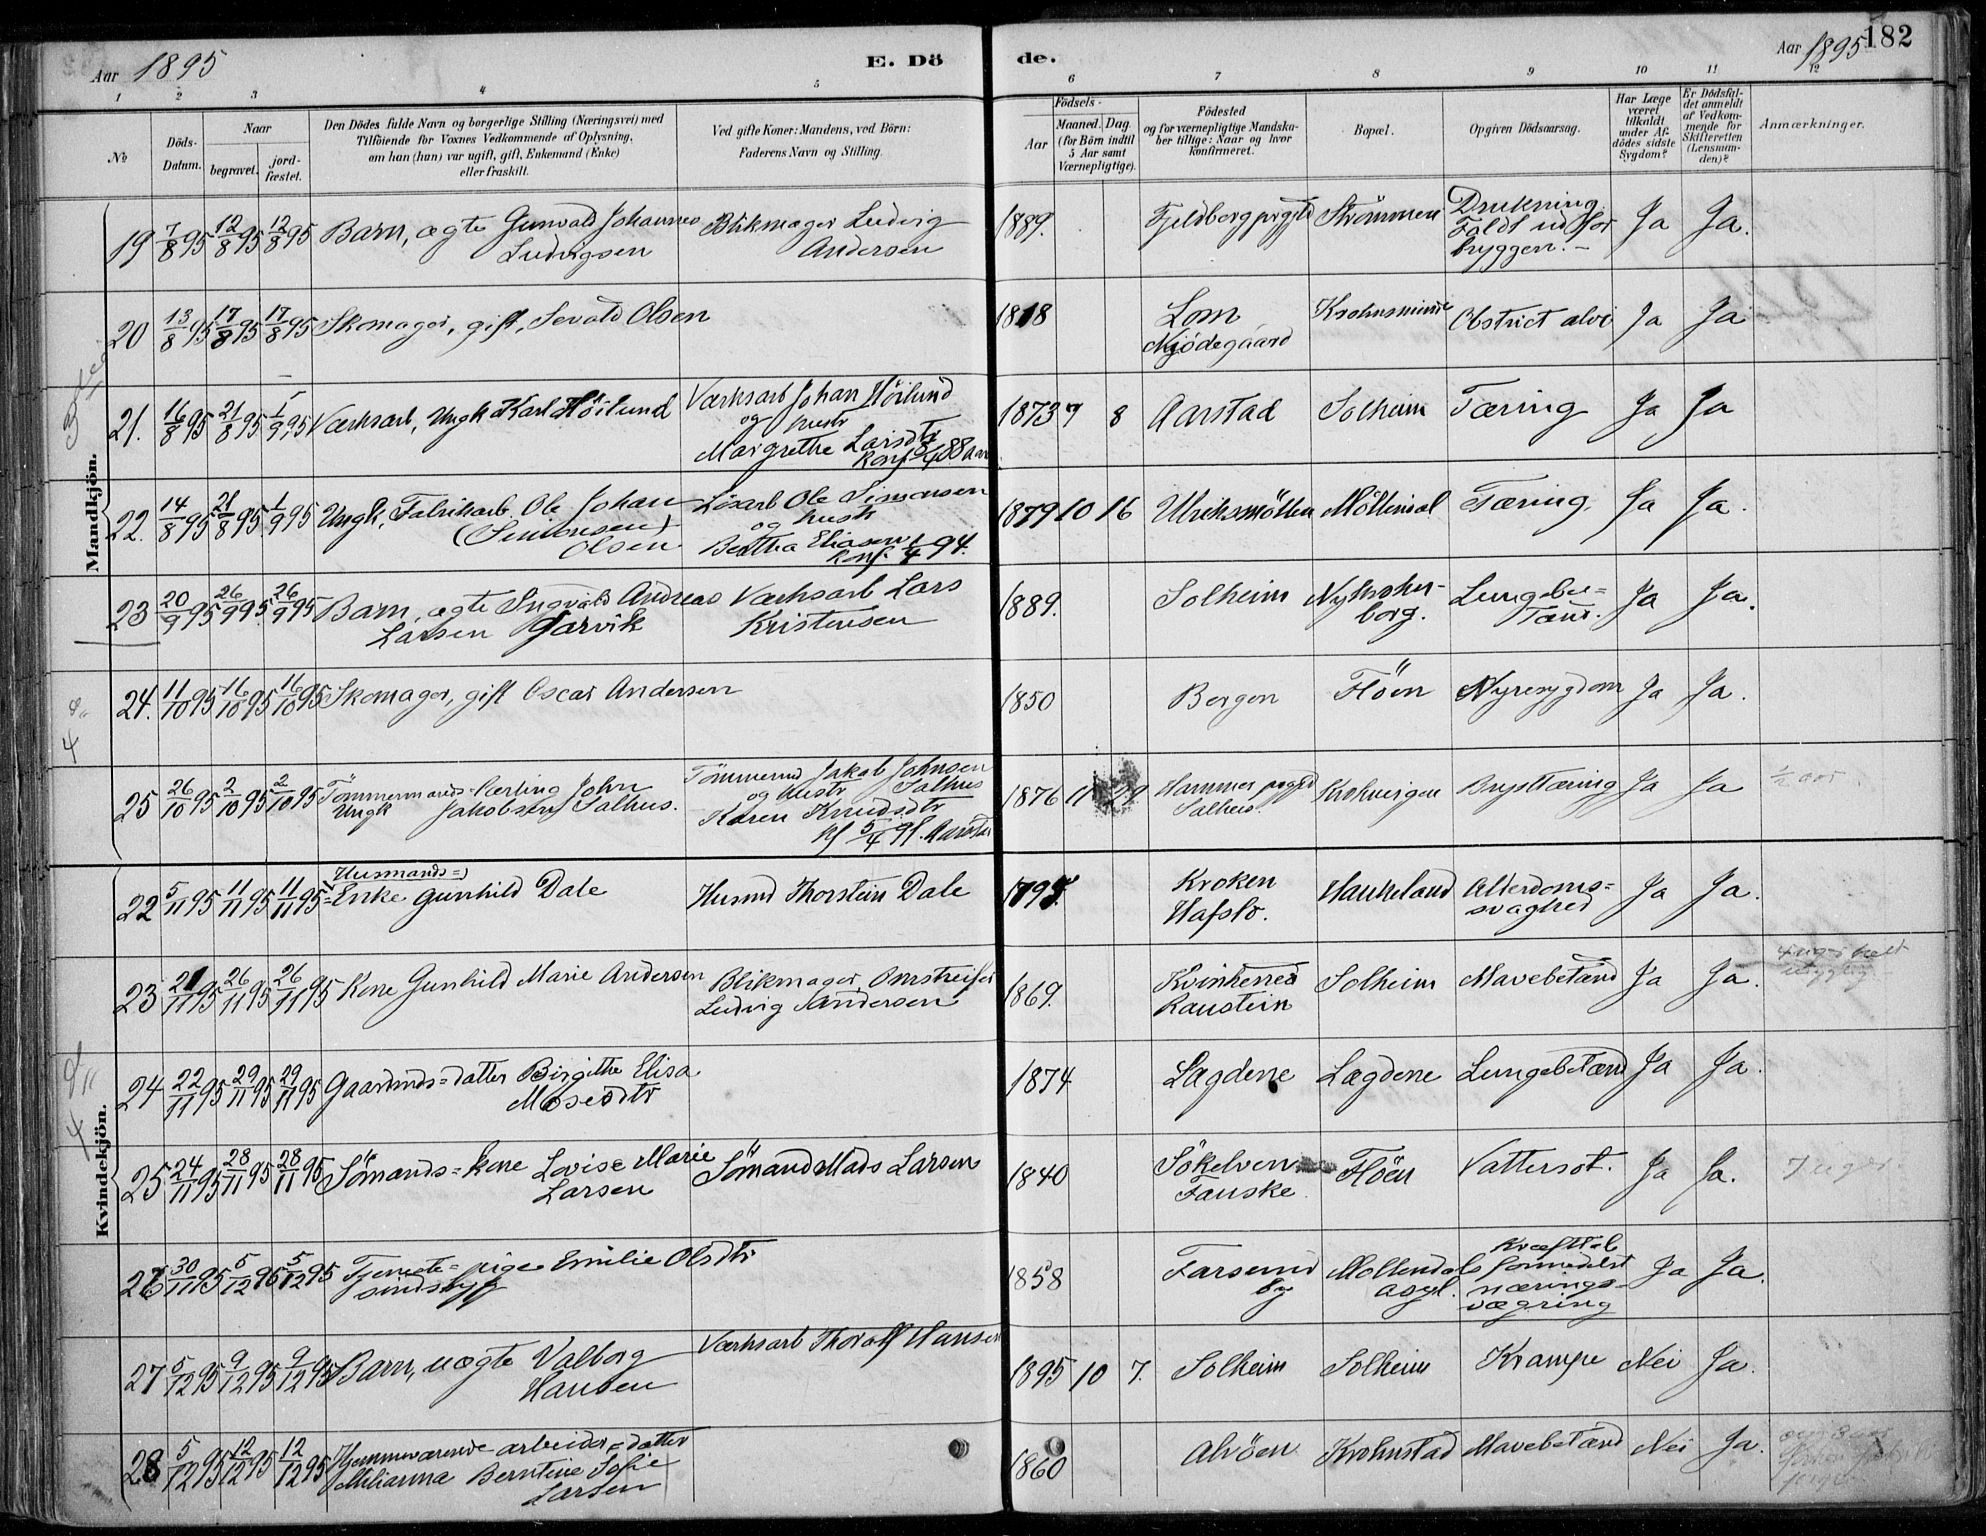 Aar 1895 E. Dö de. Aar 1895 182
1 2 3 4 5 6 7 8 9 10 11 12
No Döds-Datum. Naar begravet. jord-fæstet. Den Dödes fulde Navn og borgerlige Stilling (Næringsvei) med Tilföiende for Voxnes Vedkommende af Oplysning, om han (hun) var ugift, gift, Enkemand (Enke) eller fraskilt. Ved gifte Koner: Mandens, ved Börn: Faderens Navn og Stilling. Födsels- Aar Maaned. Dag (for Börn indtil 5 Aar samt Værnepligtige). Födested og for værnepligtige Mandska-ber tillige: Naar og hvor konfirmeret. Bopæl. Opgiven Dödsaarsag. Har Læge været tilkaldt under Af-dödes sidste Sygdom? Er Dödsfal-det anmeldt af Vedkom-mende for Skifteretten (Lensman-den)? Anmærkninger.
Mandkjön.
19 7/8 95 12/8 95 12/8 95 Barn, ægte Gunvald Johannes Blikmager Ludvig 1889. Fjeldberg prgjld Strömmen Drukning. Ja Ja.
Ludvigsen Andersen Faldt ud for
bryggen. –
20 13/8 95 17/8 95 17/8 95 Skomager, gift, Sevald Olsen 1818 Lom Krohnsminde Obstrict alvi Ja Ja
Mjödegaard
21. 16/8 95 21/8 95 1/9 95 Værksarb, Ungk Karl Höilund Værksarb Johan Höilund 1873 7 8 Aarstad Solheim Tæring Ja Ja
og hustr
Margrethe Larsdtr
Konf 8/4 88 Aar
22. 14/8 95 21/8 95 1/9 95 Ungk, Fabrikarb. Ole Johan Lösarb Ole Simonsen 1879 10 16 Ulriksmöllen Möllendal Tæring. Ja Ja.
(Simonsen) og hustr
Olsen Bertha Eliasen
konf. 1/4 94.
23 20/9 95 26/9 95 26/9 95 Barn, ægte Ingvald Andreas Værksarb Lars 1889. Solheim Nykrohn- Lungebe= Ja Ja.
Larsen Gjarvik Kristensen borg. Tænd.
24. 11/10 95 16/10 95 16/10 95 Skomager, gift Oscar Andersen 1850 Bergen Flöen Nyresygdom Ja Ja.
25 26/10 95 2/10 95 2/10 95 Tömmermands=lærling John Tömmermd Jakob Johnsen 1876 11 Hammer prgjld Krohnvigen Brysttæring Ja Ja 1/2 aar
Ungk Jakobsen Salhus. og hustr Salhus Salhus.
Karen Knudsdtr
kf 5/4 91. Aarstad
Kvindekjön.
22 5/11 95 11/11 95 11/11 95 Husmands=
=Enke Gunhild Dale Husmd Thorstein Dale Kroken Haukeland Alderdoms= Ja Ja.
Hafslo. svaghed
23 21/11 95 26/11 95 26/11 95 Kone Gunhild Marie Andersen Blikmager, Omstreifer 1869. Kvinherred Solheim Mavebetænd Ja Ja.
Ludvig Andersen Raustein
24 22/11 95 29/11 95 29/11 95 Gaardmds=datter Birgithe Elisa 1874 Lægdene Lægdene Lungebetænd Ja Ja.
Mosesdtr
25 24/11 95 28/11 95 28/11 95 Sömands=kone Lovise Marie Sömand Mads Larsen 1840 Sökelven Flöen Vattersot. Ja Ja. 7 uger
Larsen Fauske.
26 30/11 95 5/12 95 5/12 95 Tjeneste=pige Emilie Olsdtr 1858 Farsund Möllendals Kræfttab Ja Ja.
sindssyg by asyl. formedelst
nærings-
vægring
27 5/12 95 9/12 95 9/12 95 Barn, uægte Valborg Værksarb Thoralf Hansen 1895 10 7. Solheim Solheim Krampe Nei Ja.
Hansen
28 5/12 95 12/12 95 12/12 95 Hjemmeværende arbeider=datter 1860 Alvöen Krohnstad Mavebetænd Nei Ja.
Milianna Berntine Sofie
Larsen